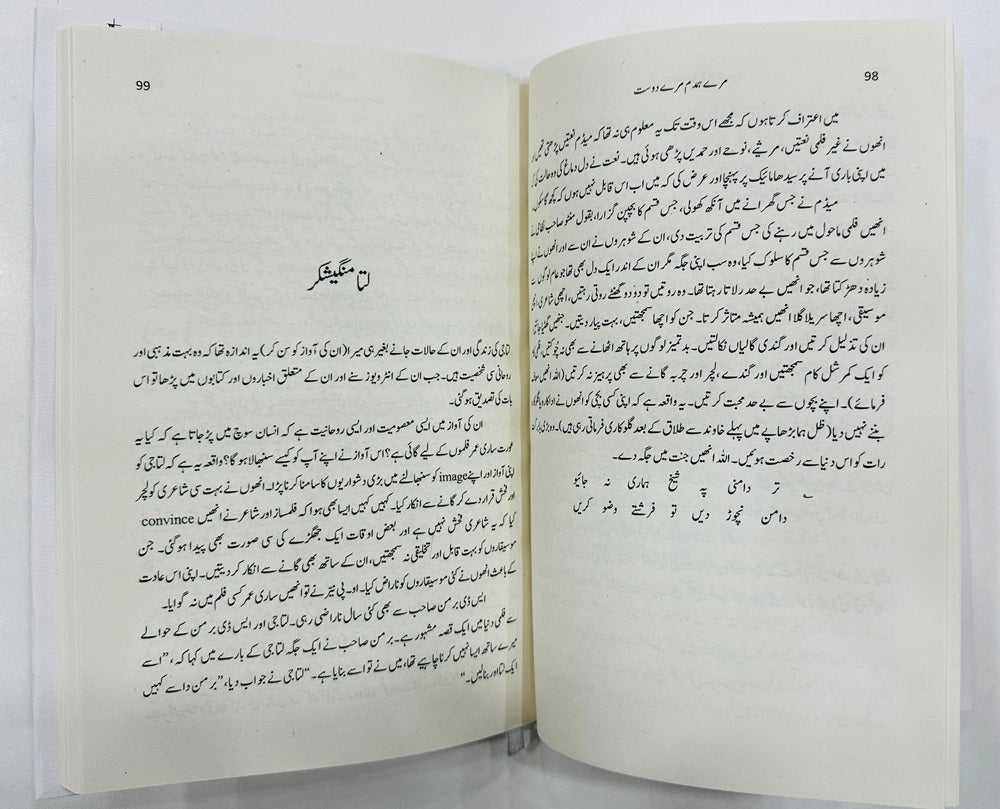 98
مرے ہمدم مرے دوست
میں اعتراف کرتا ہوں کہ مجھے اس وقت تک یہ معلوم ہی نہ تھا کہ میڈم نعتیں پڑھتی تھیں
انھوں نے غیر فلمی نعتیں، مرثیے، نوحے اور حمدیں پڑھی ہوئی ہیں۔ نعت نے دل دماغ کی وہ حالت کی
میں اپنی باری آنے پر سیدھا مائیک پر پہنچا اور عرض کی کہ میں اب اس قابل نہیں ہوں کہ کچھ گا سکوں۔
میڈم نے جس گھرانے میں آنکھ کھولی، جس قسم کا بچپن گزارا، بقول منٹو صاحب
انھیں فلمی ماحول میں رہنے کی جس قسم کی تربیت دی، ان کے شوہروں نے ان سے اور انھوں نے اپنے
شوہروں سے جس قسم کا سلوک کیا، وہ سب اپنی جگہ مگر ان کے اندر ایک دل بھی تھا جو عام لوگوں سے
زیادہ دھڑکتا تھا، جو انھیں بے حد رلاتا رہتا تھا۔ وہ روتیں تو دو دو گھنٹے روتی رہتیں، اچھی شاعری،
موسیقی، اچھا سریلا گلا انھیں ہمیشہ متاثر کرتا۔ جن کو اچھا سمجھتیں، بہت پیار دیتیں۔ جنھیں گھٹیا جانتیں
ان کی تذلیل کرتیں اور گندی گالیاں نکالتیں۔ بدتمیز لوگوں پر ہاتھ اٹھانے سے بھی نہ چوکتیں،
کو ایک کمرشل کام سمجھتیں اور گندے، لچر اور چربہ گانے سے بھی پرہیز نہ کرتیں (اللہ انھیں معاف
فرمائے)۔ اپنے بچوں سے بے حد محبت کرتیں۔ یہ واقعہ ہے کہ اپنی کسی بچی کو انھوں نے اداکارہ یا گلوکارہ
بننے نہیں دیا (ظل ہما بڑھاپے میں پہلے خاوند سے طلاق کے بعد گلوکاری فرماتی رہی ہیں)۔ وہ بڑی
رات کو اس دنیا سے رخصت ہوئیں۔ اللہ انھیں جنت میں جگہ دے۔
تر دامنی پہ شیخ ہماری نہ جائیو
دامن نچوڑ دیں تو فرشتے وضو کریں
99
لتا منگیشکر
لتا جی کی زندگی اور ان کے حالات جانے بغیر ہی میرا (ان کی آواز کو سن کر) یہ اندازہ تھا کہ وہ بہت مذہبی اور
روحانی سی شخصیت ہیں۔ جب ان کے انٹرویوز سنے اور ان کے متعلق اخباروں اور کتابوں میں پڑھا تو اس
بات کی تصدیق ہوگئی۔
ان کی آواز میں ایسی معصومیت اور ایسی روحانیت ہے کہ انسان سوچ میں پڑ جاتا ہے کہ کیا یہ
عورت ساری عمر فلموں کے لیے گائی ہے؟ اس آواز نے اپنے آپ کو کیسے سنبھالا ہوگا؟ واقعہ یہ ہے کہ لتا جی کو
اپنی آواز اور اپنے image کو سنبھالنے میں بڑی دشواریوں کا سامنا کرنا پڑا۔ انھوں نے بہت سی شاعری کو لچر
اور فحش قرار دے کر گانے سے انکار کیا۔ کہیں کہیں ایسا بھی ہوا کہ فلمساز اور شاعر نے انھیں convince
کیا کہ یہ شاعری فحش نہیں ہے اور بعض اوقات ایک جھگڑے کی سی صورت بھی پیدا ہوگئی۔ جن
موسیقاروں کو بہت قابل اور تخلیقی نہ سمجھتیں، ان کے ساتھ بھی گانے سے انکار کر دیتیں۔ اپنی اس عادت
کے باعث انھوں نے کئی موسیقاروں کو ناراض کیا۔ او۔ پی نیّر نے تو انھیں ساری عمر کسی فلم میں نہ گوایا۔
ایس ڈی برمن صاحب سے بھی کئی سال ناراضی رہی۔ لتا جی اور ایس ڈی برمن کے حوالے
سے فلمی دنیا میں ایک قصہ مشہور ہے۔ برمن صاحب نے ایک جگہ لتا جی کے بارے میں کہا کہ، ”اسے
میرے ساتھ ایسا نہیں کرنا چاہیے تھا، میں نے تو اسے بنایا ہے۔“ لتا جی نے جواب دیا، ”برمن دا سے کہیں
ایک لتا اور بنا لیں۔“